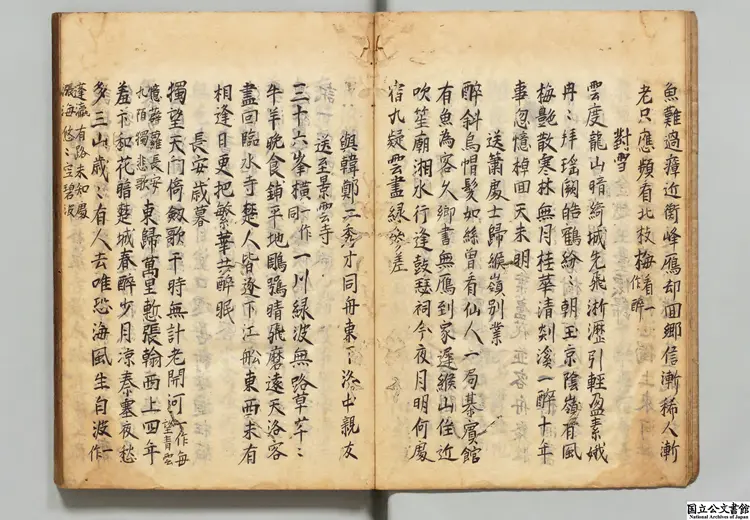 魚難過瘴近衡峰鴈却回郷信漸稀人漸
老只應頻看北枝梅 看一作醉
對雪
雲度龍山暗綺城先飛淅瀝引輕盈素娥
冉〻拝瑤闕皓鶴紛〻朝玉京陰嶺有風
梅艶散寒林無月桂華清剡溪一醉十年
事忽憶棹回天未明
送蕭處士歸緱嶺別業
醉斜烏帽髮如絲曽看仙人一局棊賓館
有魚為客久郷書無鴈到家遲緱山住近
吹笙廟湘水行逢鼓瑟祠今夜月明何處
宿九疑雲盡緑參差
與韓鄭二秀才同舟東下洛中親友
送至景雲寺
三十六峯橫 一作同 一川緑波無路草芊〻
牛羊晩食鋪平地鵰鶚晴飛磨遠天洛客
盡回臨水寺楚人皆逐下江舩東西未有
相逢日更把繁華共醉眠
長安歳暮
獨望天門倚劔歌干時無計老關河 一作每望青雲
憶薜蘿長安九陌獨悲歌 東歸萬里慙張翰西上四年
羞卞和花暗楚城春醉少月涼秦塞夜愁
多三山歳〻有人去唯恐海風生白波 一作
蓬瀛有路未知處滄海悠〻空碧波
国立公文書館
National Archives of Japan